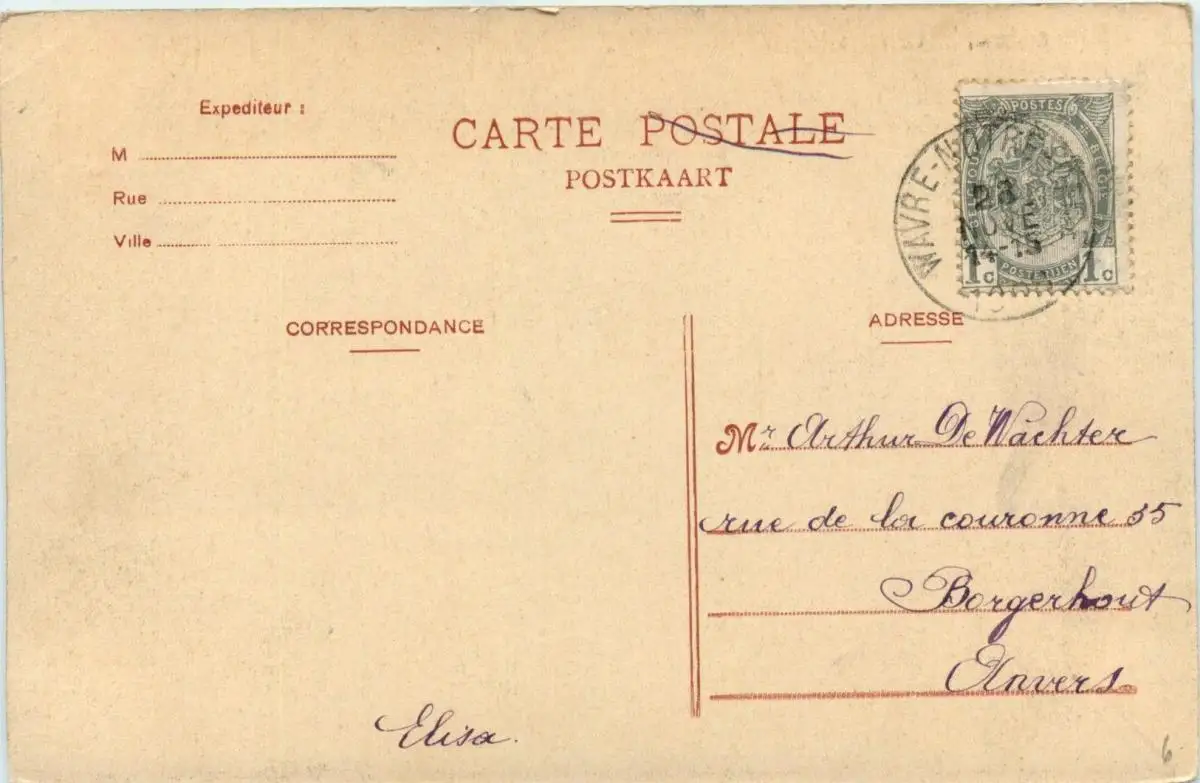 Expediteur :
M
Rue
Ville
CARTE POSTALE
POSTKAART
POSTES
1c POSTERIJEN 1c
WAVRE-NOTRE
28
CORRESPONDANCE
ADRESSE
Mr Arthur De Wachter
rue de la couronne 55
Borgerhout
Anvers
Elisa.
6